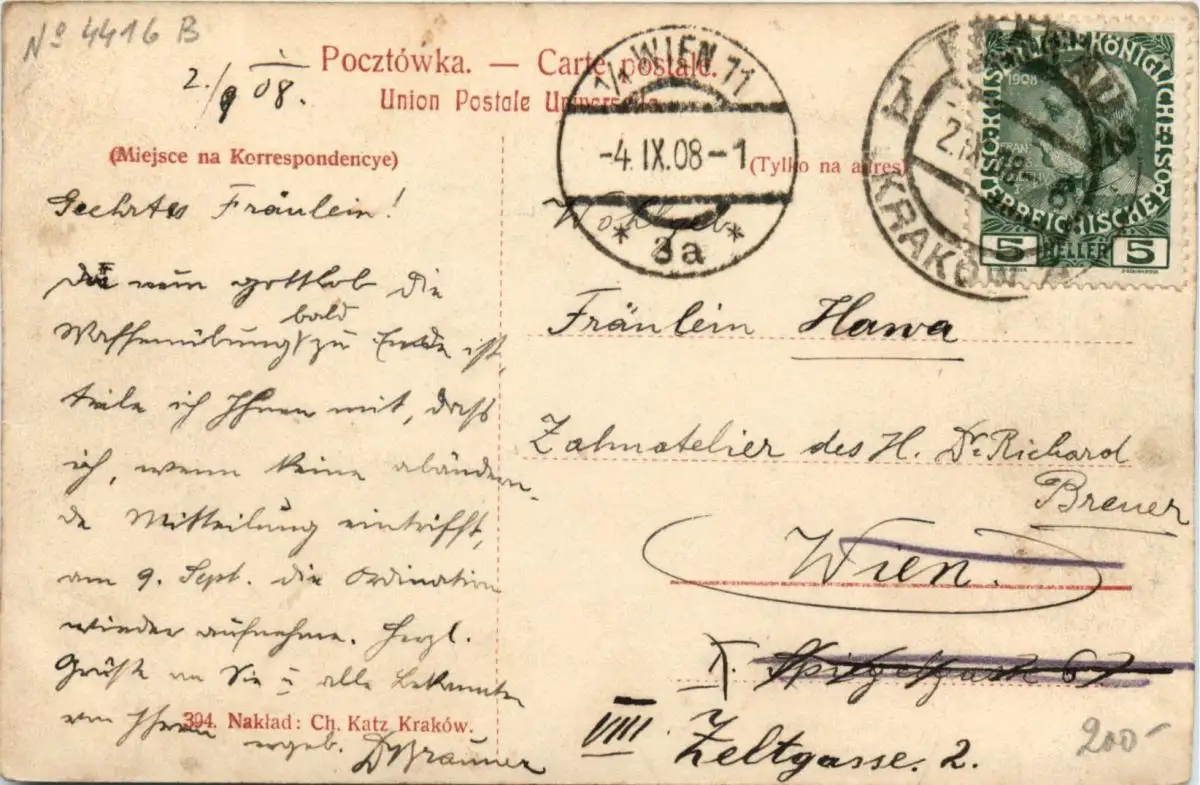 No 4416 B
2./9 08.
Pocztówka. — Carte postale.
Union Postale Universelle
(Miejsce na Korrespondencye)
(Tylko na adres)
1/1 WIEN 71
-4.IX.08-1
* 3a *
KRAKÓW
2.IX.08
KAISERLICHE KÖNIGLICHE POST
ÖSTERREICHISCHE
1908
5 HELLER 5
Geehrtes Fräulein!
Da nun gottlob die
bald
Waffenübung zu Ende ist,
teile ich Ihnen mit, dass
ich, wenn keine abändern-
de Mitteilung eintrifft,
am 9. Sept. die Ordination
wieder aufnehme. Herzl.
Grüße an Sie u alle Bekannten
von Ihrem
ergeb.
Wohlgeb.
Fräulein Hawa
Zahnatelier des H. Dr Richard
Breuer
Wien.
X.
VIII Zeltgasse. 2.
394. Nakład: Ch. Katz Kraków.
200-